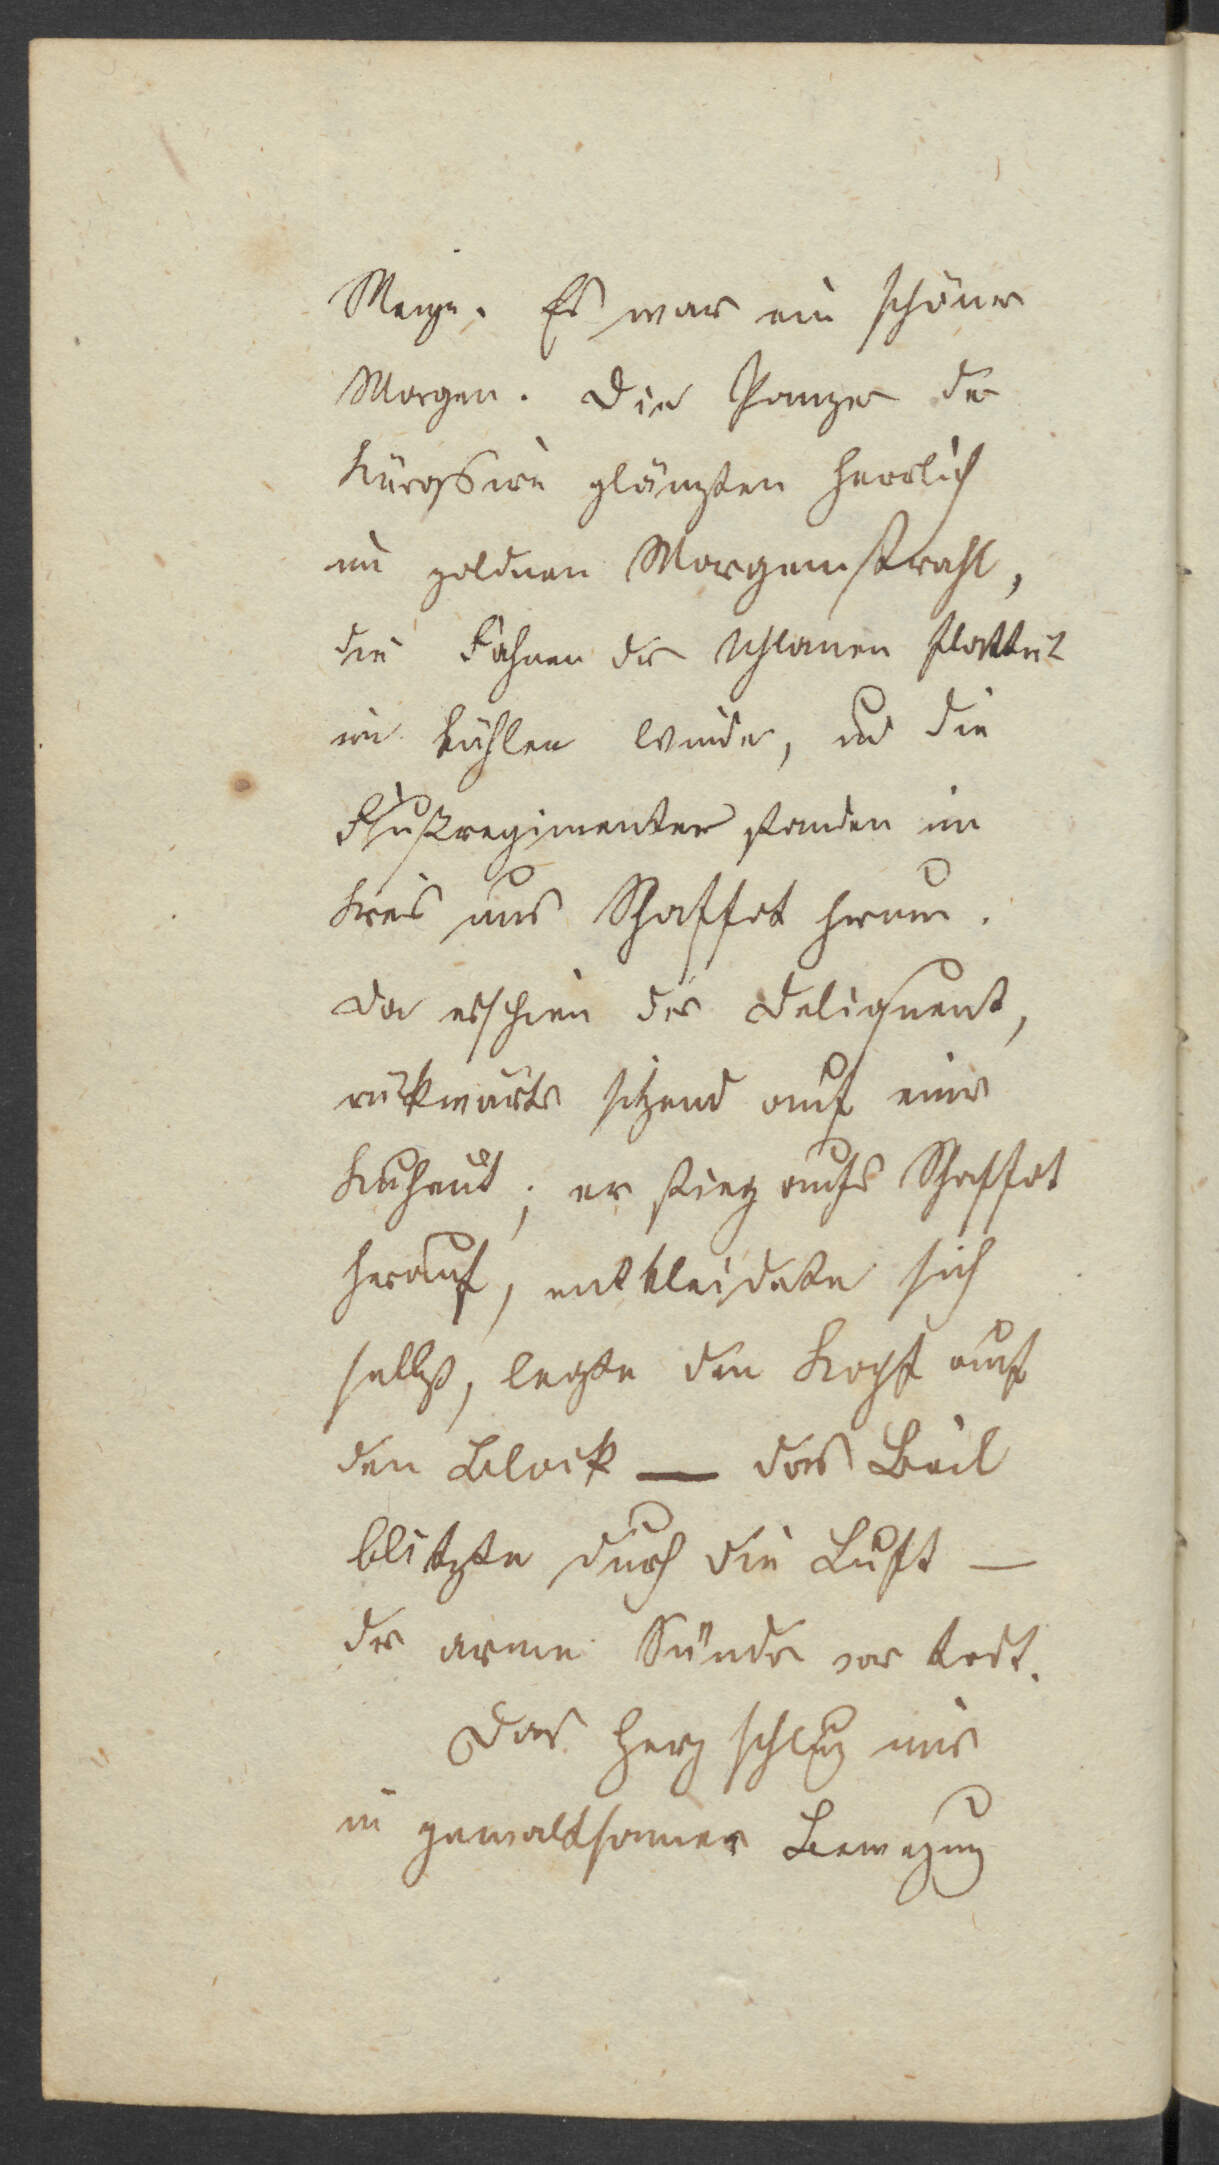 Menge. Es war ein schöner
Morgen. Die Panzer der
Küraßire glänzten herrlich
im goldnen Morgenstrahl,
die Fahnen der Uhlanen flatterten
im kühlen Winde, und die
Fußregimenter standen im
Kreis ums Schaffot herum.
Da erschien der Deliquent,
rückwärts sitzend auf einer
Kuhaut; er stieg aufs Schaffot
herauf, entkleidete sich
selbst, legte den Kopf auf
den Block — das Beil
blitzte durch die Luft —
der arme Sünder war todt.
Das Herz schlug mir
in gewaltsamer Bewegung